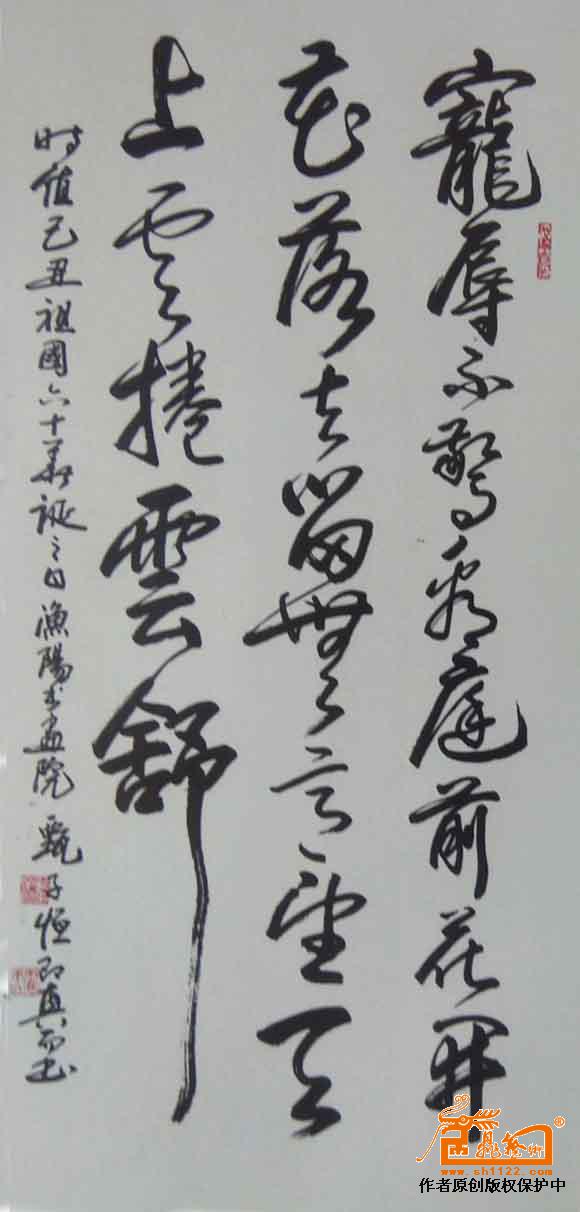 寵辱不驚看庭前花開
花落去留無意望天
上云捲雲舒
時值己丑祖國六十華誕之日漁陽书畫院甄子恒
www.sh1122.com
作者原创版权保护中